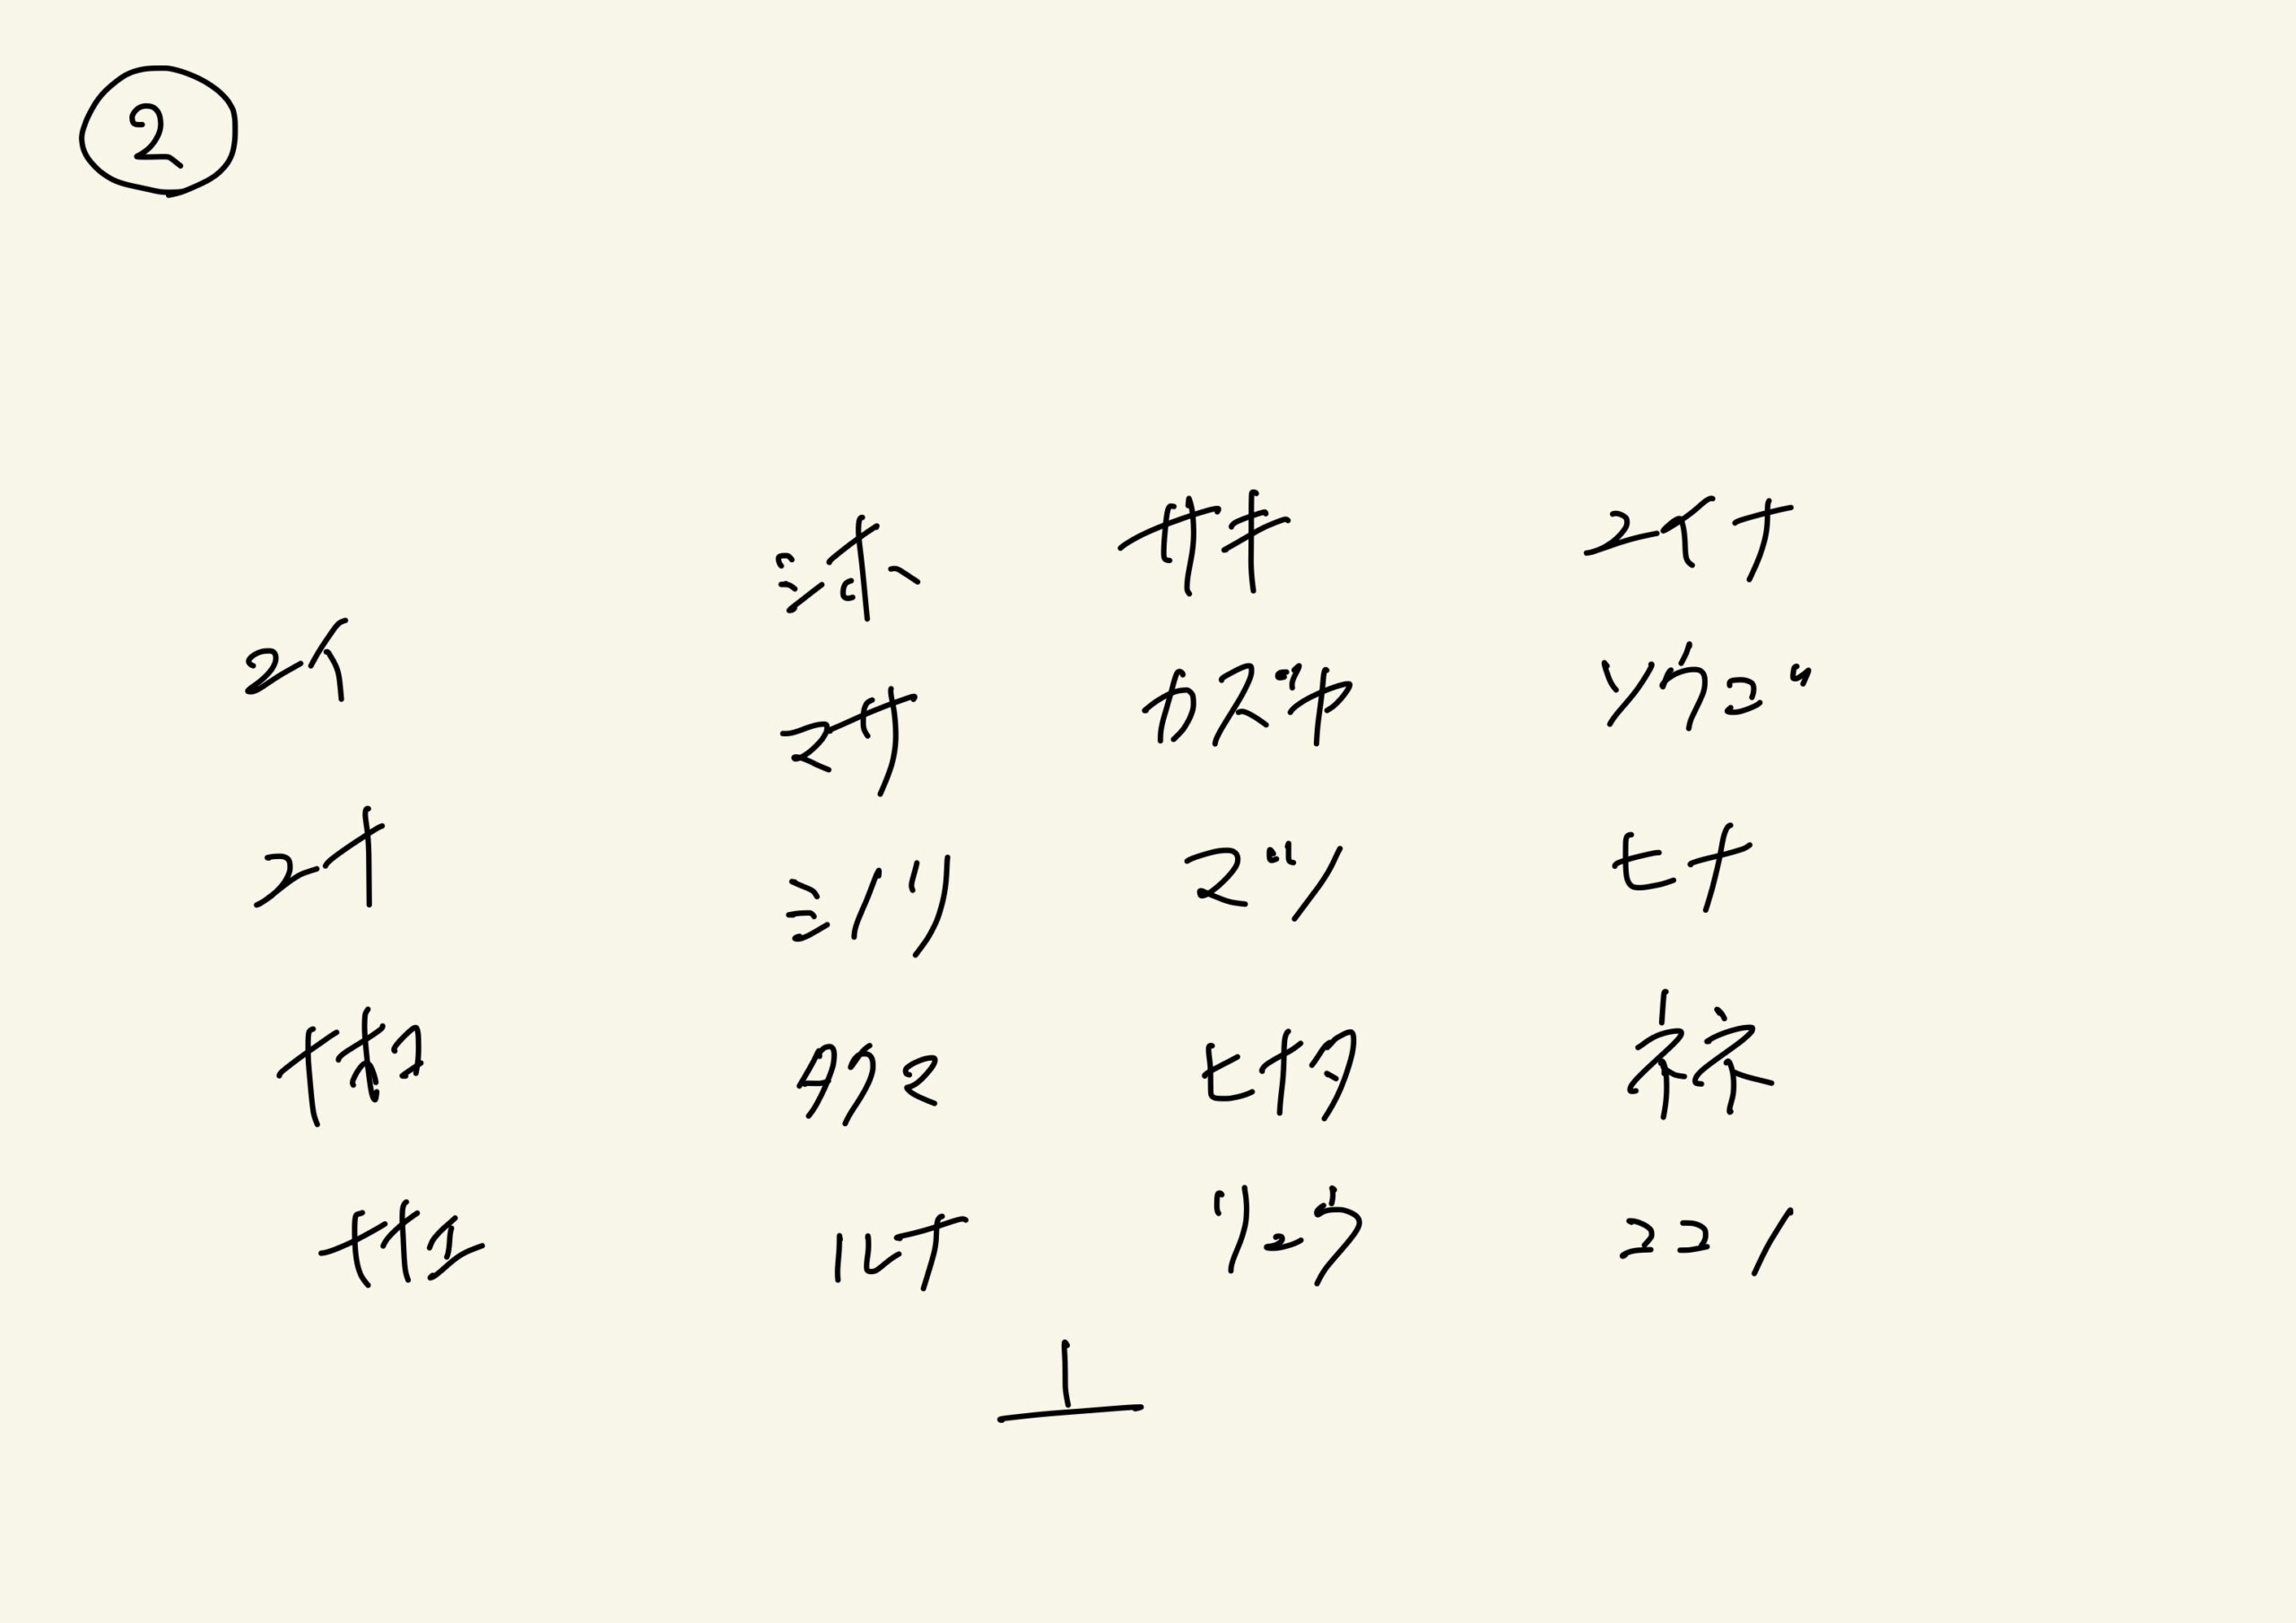 ②
シホ サキ ユイナ
ユイ
マサ カズヤ ソウゴ
ユナ
ミノリ マツ ヒナ
ナホコ タクマ ヒナタ ネネ
ナナエ ルナ リュウ ココノ
1